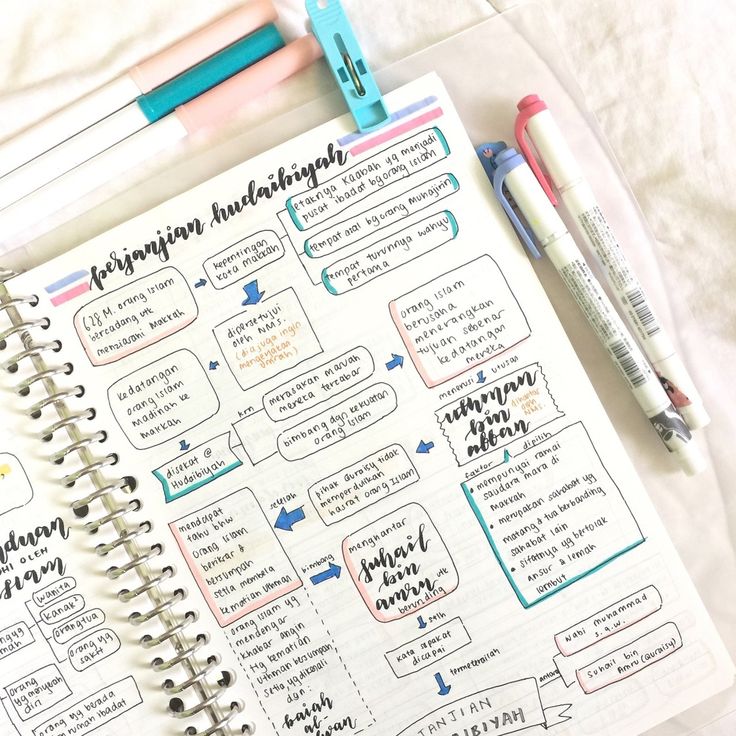 perjanjian hudaibiyah
628 M. orang Islam
bercadang utk
menziarahi Makkah
kepentingan
kota makkah
etaknya Kaabah yg menjadi
pusat ibadat bg orang Islam
tempat asal bg orang Muhajirin
tempat turunnya wahyu
pertama
dipersetujui
oleh N.M.S.
(dia juga ingin
mengerjakan
umrah)
kedatangan
orang Islam
madinah ke
makkah
disekat @
Hudaibiyah
krn
merasakan maruah
mereka tercabar
bimbang dgn kekuatan
orang Islam
orang Islam
berusaha
menerangkan
tujuan sebenar
kedatangan
mereka
menerusi utusan
uthman
bin
affan
dihantar
oleh
N.M.S.
faktor dipilih
• mempunyai ramai
saudara mara di
makkah
• merupakan sahabat yg
matang & tua berbanding
sahabat lain
• sifatnya yg bertolak
ansur & lemah
lembut
pihak Quraisy tidak
memperdulikan
hasrat orang Islam
setelah
mendapat
tahu bhw
orang Islam
berikrar &
bersumpah
setia membela
kematian Uthman
orang Islam yg
mendengar
khabar angin
ttg kematian
Uthman bersumpah
setia yg dikenali
dgn:
baiah
al-
bimbang
menghantar
Suhail
bin
amru
utk
berunding
slh
kata sepakat
dicapai
termeterailah
JANJIAN
IBIYAH
antara
Nabi muhammad
s.a.w.
Suhail bin
Amru (Quraisy)
nduan
OLEH
slam
wanita
kanak²
orang tua
orang yg
sakit
orang
yg menyerah
diri
orang yg berada
rumah ibadat